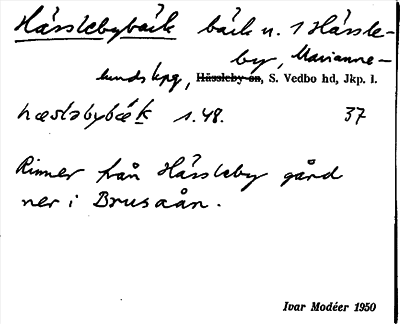 Hässlebybäck bäck n. 1 Hässle-
by, Marianne-
lunds kpg, Hässleby sn, S. Vedbo hd, Jkp. l.
hæslabybæk 1.48. 37
Rinner från Hässleby gård
ner i Brusaån.
Ivar Modéer 1950